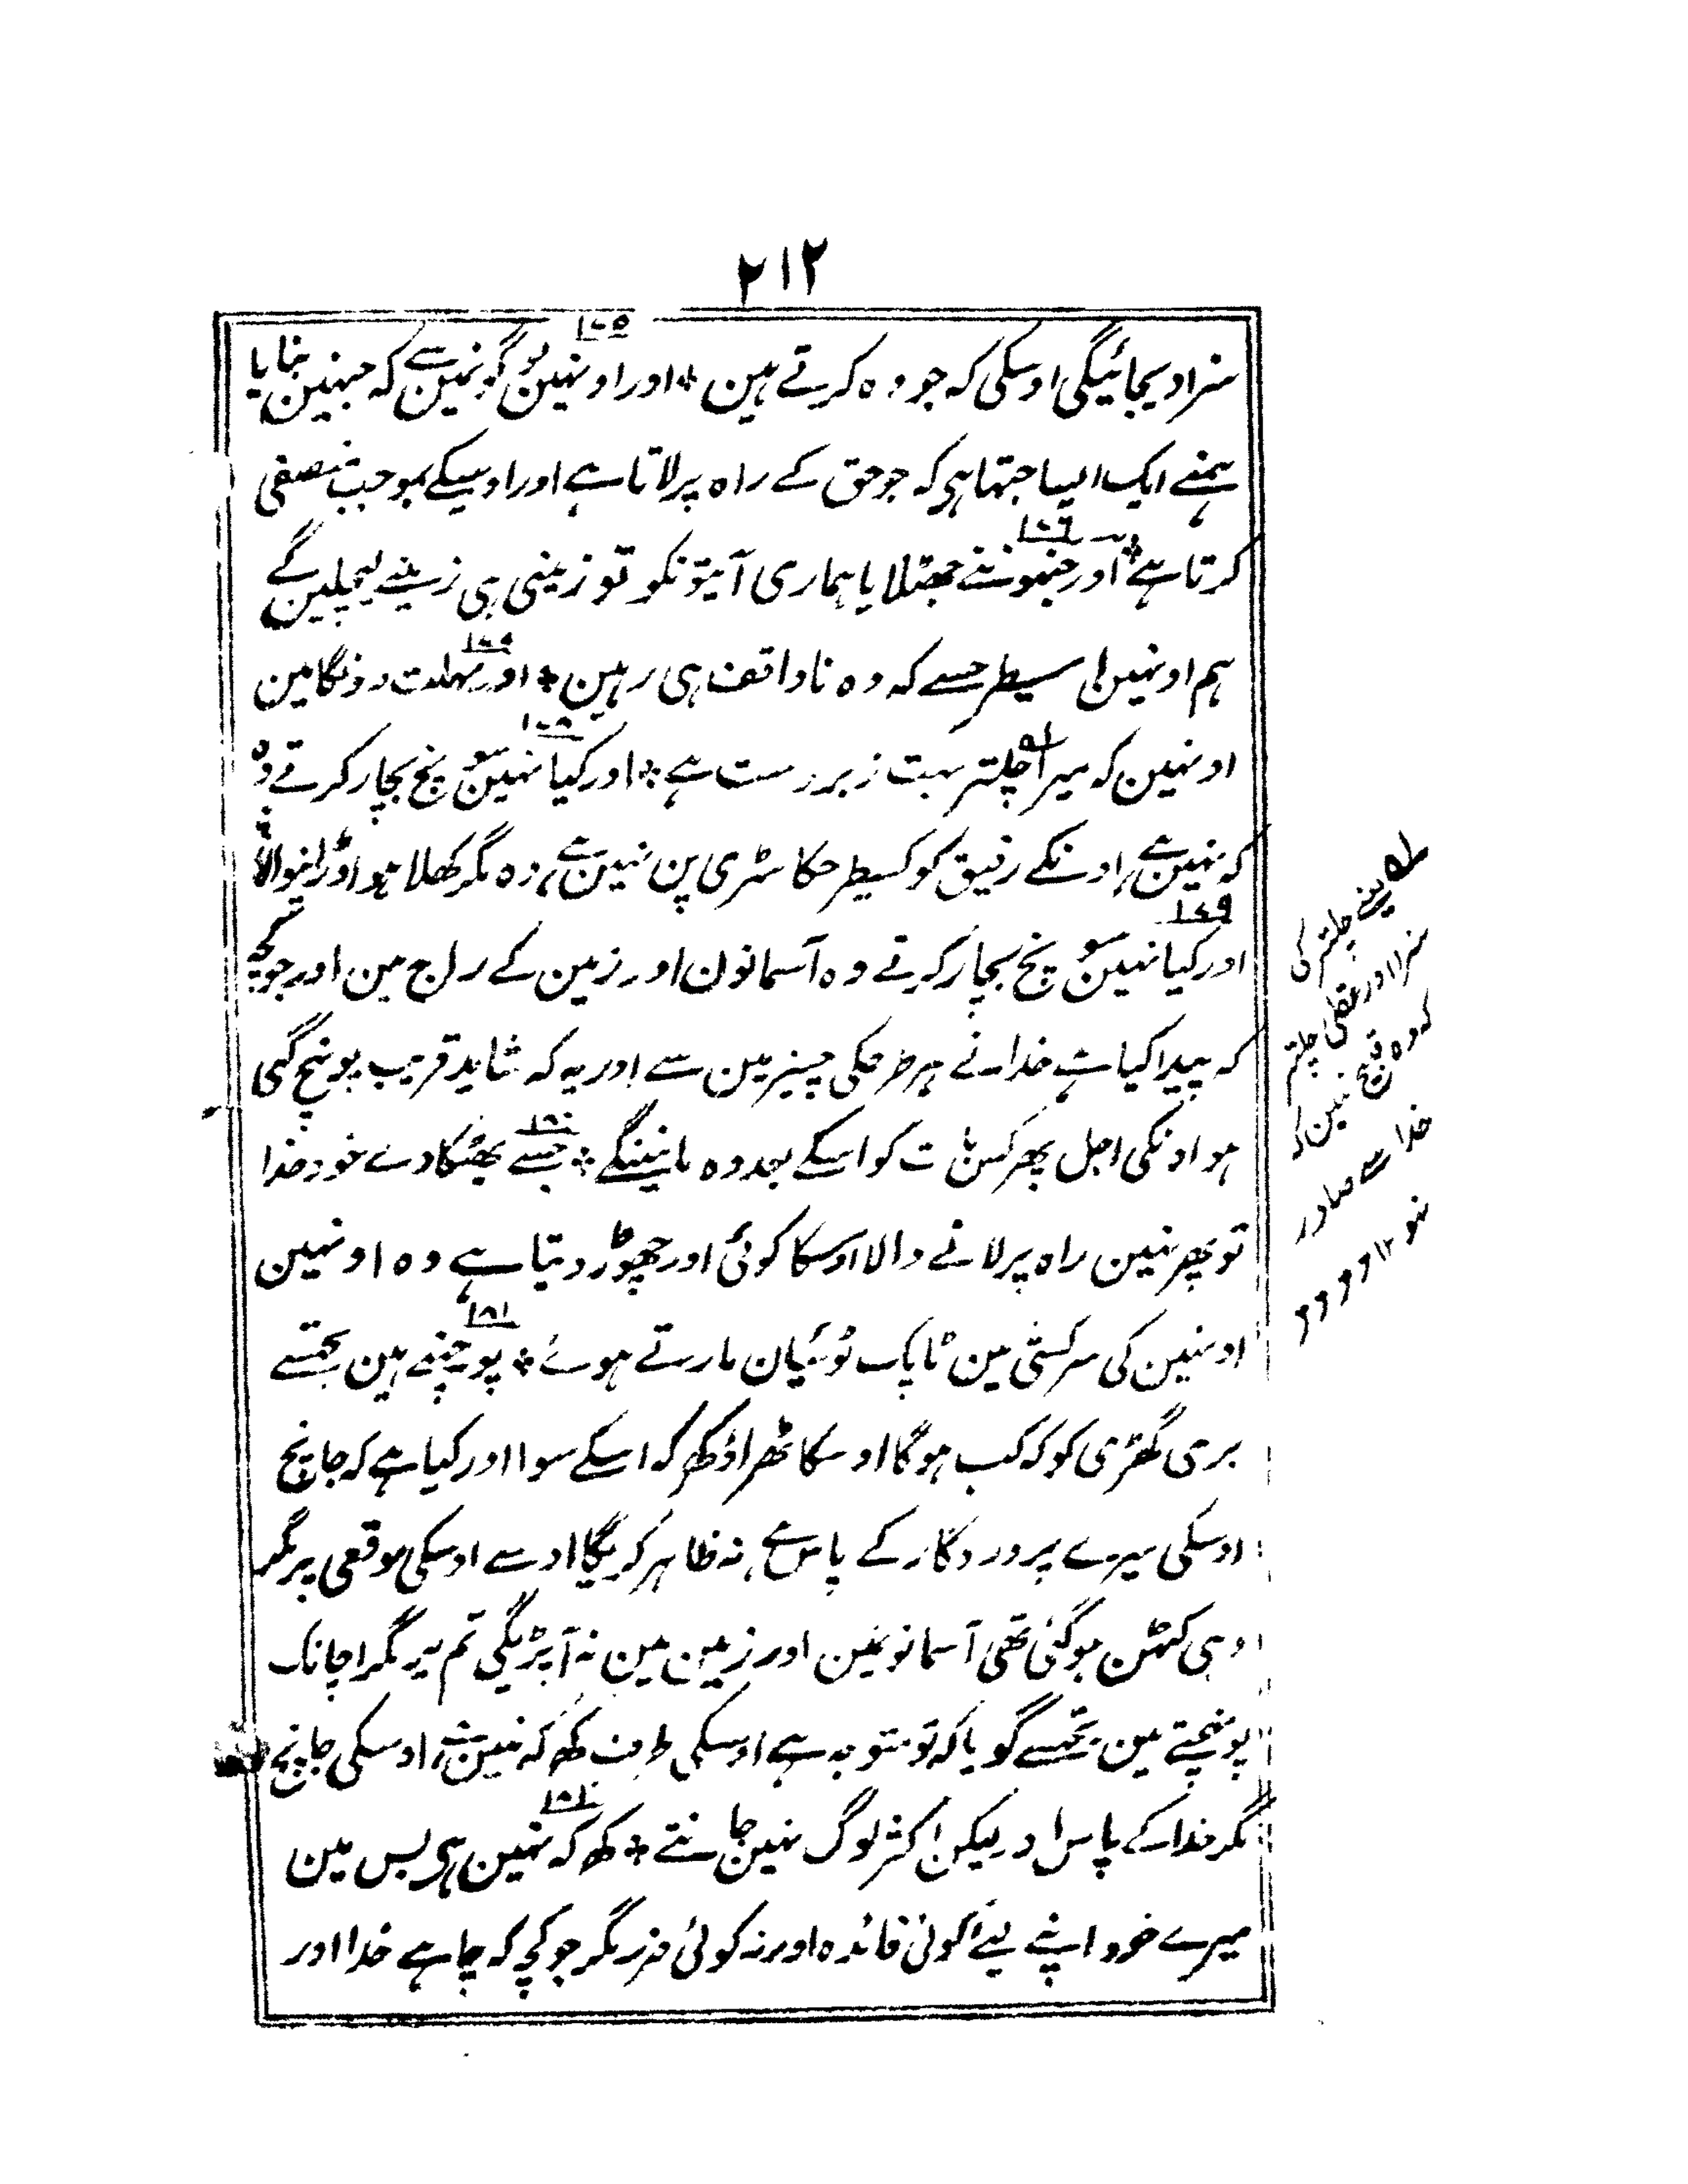 ۲۱۲
سزا دیجائیگی اوسکی کہ جو وہ کرتے ہین * اور اونہین لوگونمین سے کہ جنہین بنایا
۱۷۵
ہمنے ایک ایسا جتہا ہی کہ جو حق کے راہ پر لاتا ہے اور اوسیکے بموجب منصفی
کرتا ہے * اور جنہونے جھٹلایا ہماری آیتونکو تو زینی ہی زینے لیچلین گے
۱۷۶
ہم اونہین اسیطرحسے کہ وہ ناواقف ہی رہین * اور مہلت دونگا مین
اونہین کہ میرا چلتر بہت زبردست ہے * اور کیا نہین سونچ بچار کرتے وہ
کہ نہین ہے اونکے رفیق کو کسیطرحکا سٹری پن نہین ہے وہ مگر کھلا ہوا ڈرانیوالا
۱۷۹
اور کیا نہین سونچ بچار کرتے وہ آسمانون اور زمین کے راج مین اور جو کچھ
کہ پیدا کیا ہے خدا نے ہر طرحکی چیز مین سے اور یہ کہ شاید قریب پونہچ گئی
ہو اونکی اجل پھر کس بات کو اسکے بعد وہ مانینگے * جسے بھٹکا دے خود خدا
۱۸۰
تو پھر نہین راہ پر لانے والا اوسکا کوئی اور چھوڑ دیتا ہے وہ اونہین
اونہین کی سرکشی مین ٹاپک ٹوئیان مارتے ہوئے * پوچہتے ہین تجھسے
۱۸۱
بری گھڑی کو کہ کب ہوگا اوسکا ٹھراؤ کھ کہ اسکے سوا اور کیا ہے کہ جانچ
اوسکی میرے پروردگار کے پاس ہے نہ ظاہر کریگا اوسے اوسکی موقعی پر مگر
وہی کٹہن ہوگئی تھی آسمانونمین اور زمین مین نہ آپڑیگی تم پر مگر اچانک
پونچھتے ہین تجھسے گویا کہ تو متوجہ ہے اوسکی طرف کھ کہ نہین ہے اوسکی جانچ
مگر خدا کے پاس اور لیکن اکثر لوگ نہین جانتے * کھ کہ نہین ہی بس مین
میرے خود اپنے لیے کوئی فائدہ اور نہ کوئی ضرر مگر جو کچھ کہ چاہے خدا اور
یعنے چلتر کی
سزا اور عقلی چلتر
کہ وہ قبیح نہین کہ
خدا سے صادر
نہو ۱۲